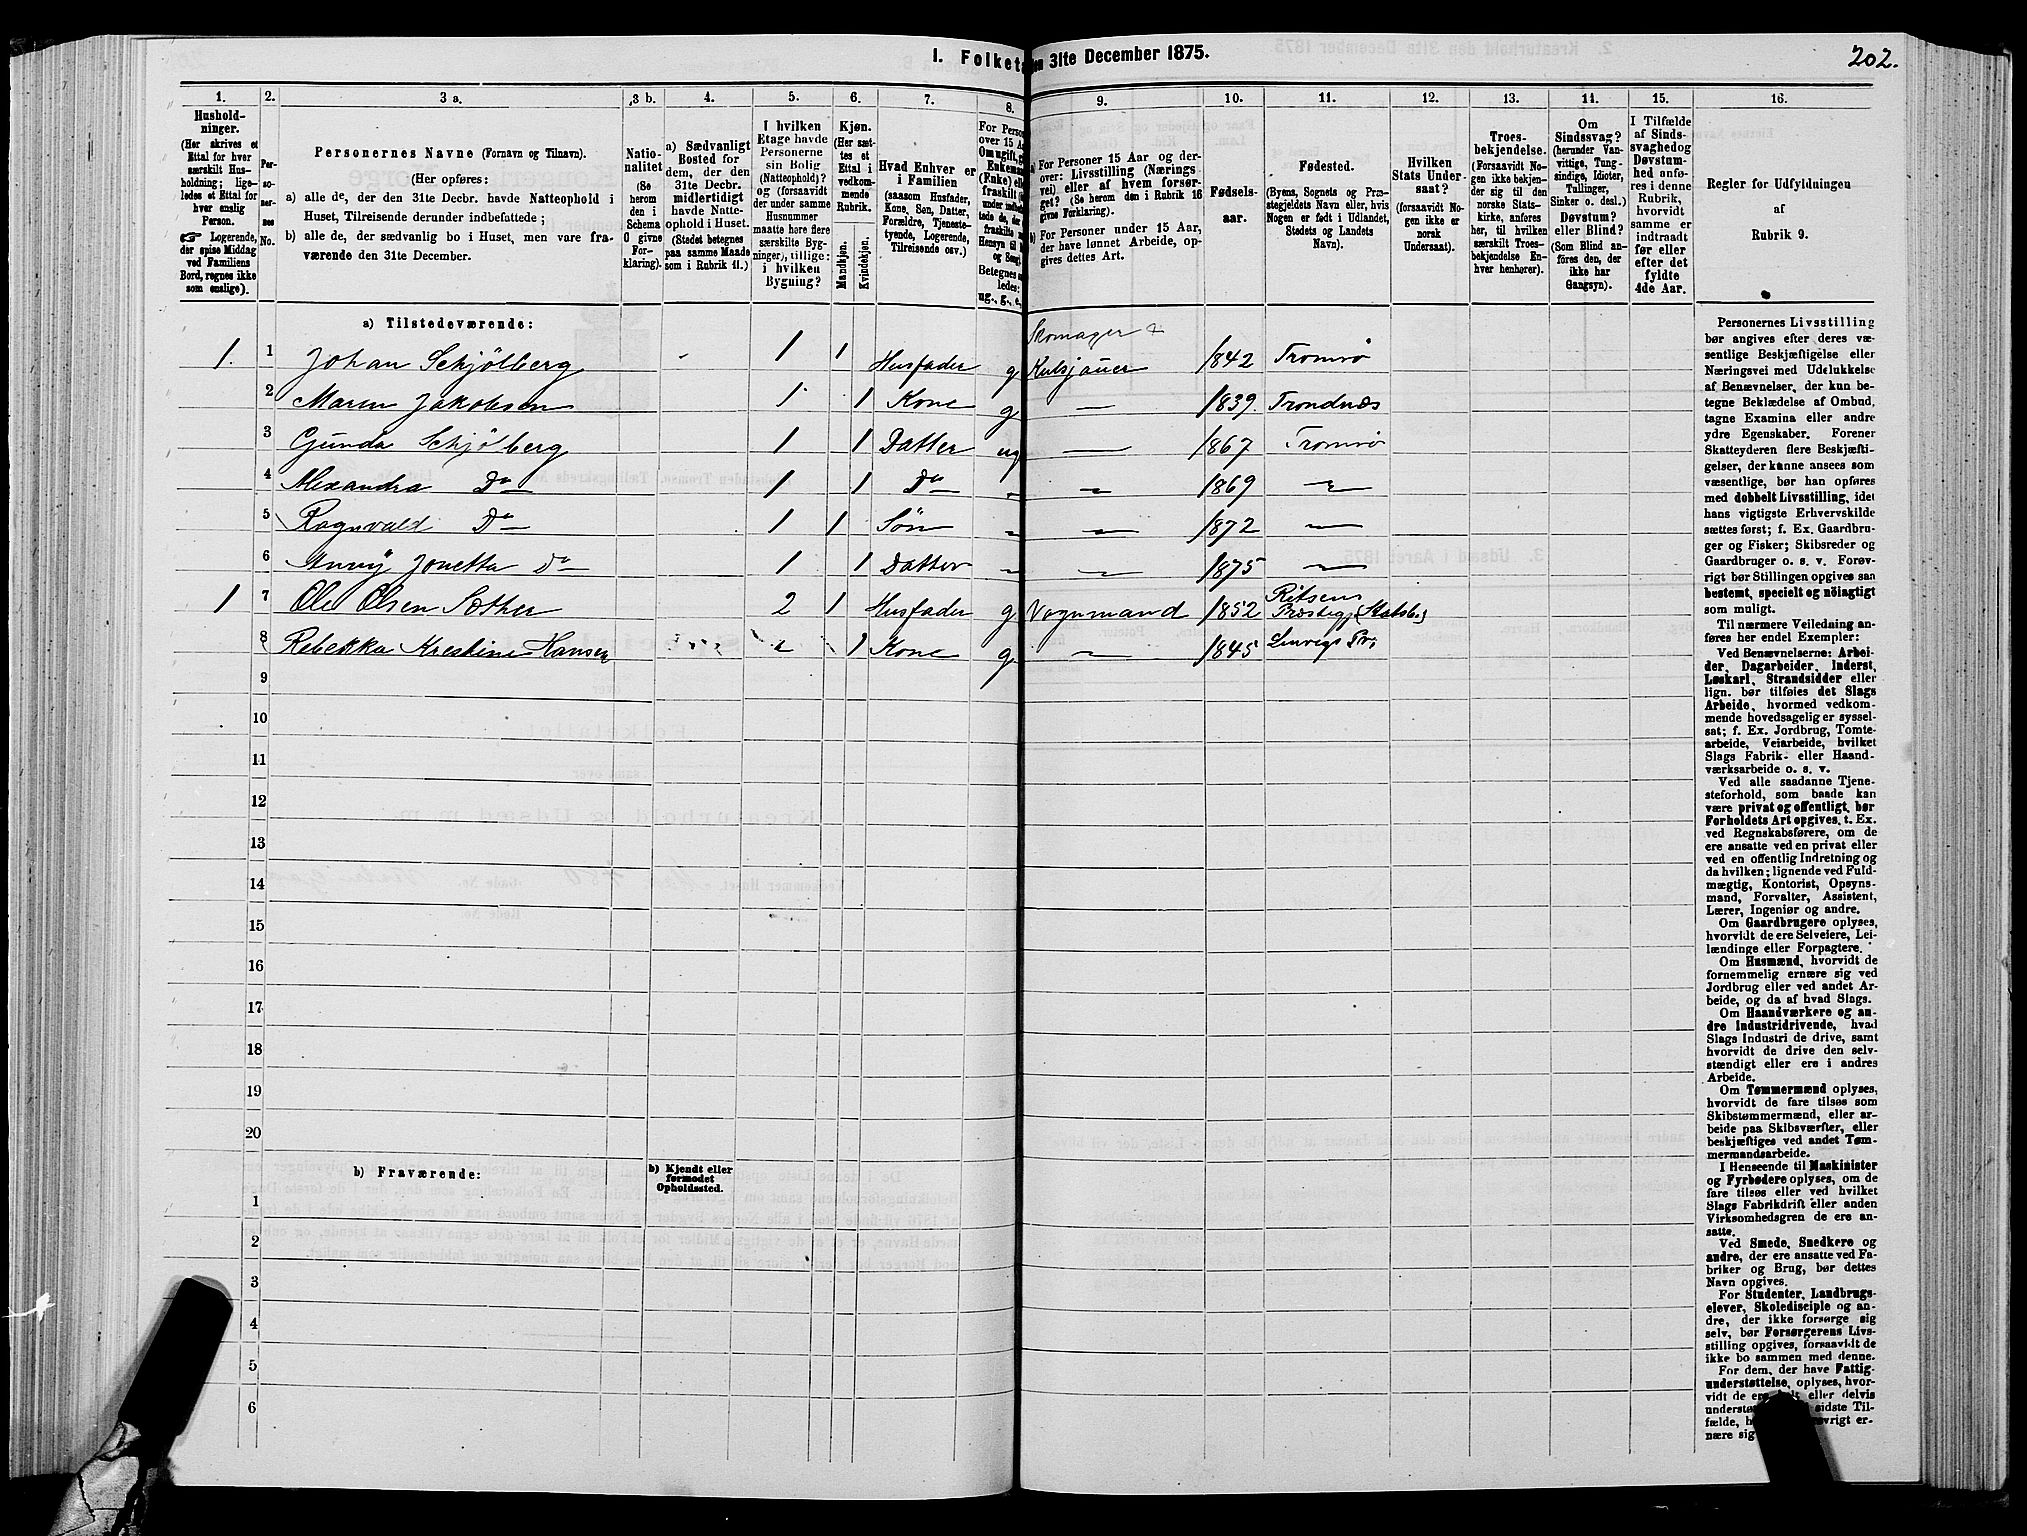 I. Folketa en 31te December 1875.
202.
1. 2. 3 a. 3 b. 4. 5. 6. 7. 8. 9. 10. 11. 12. 13. 14. 15. 16.
Hushold-
ninger.
(Her skrives et
Ettal for hver
særskilt Hus-
holdning; lige-
ledes et Ettal for
hver enslig
Person.
☞ Logerende,
der spise Middag
ved Familiens
Bord, regnes ikke
som enslige).
Per-
so-
ner-
nes
No.
Personernes Navne (Fornavn og Tilnavn).
(Her opføres:
a) alle de, der den 31te Decbr. havde Natteophold i
Huset, Tilreisende derunder indbefattede;
b) alle de, der sædvanlig bo i Huset, men vare fra-
værende den 31te December.
Natio-
nalitet
(Se
herom
den i
Schema
0 givne
For-
klaring).
a) Sædvanligt
Bosted for
dem, der den
31te Decbr.
midlertidigt
havde Natte-
ophold i Huset.
(Stedet betegnes
paa samme Maade
som i Rubrik 11.)
I hvilken
Etage havde
Personerne
sin Bolig
(Natteophold)?
og (forsaavidt
der under samme
Husnummer
maatte høre flere
særskilte Byg-
ninger), tillige:
i hvilken
Bygning?
Kjøn.
(Her sæt-
tes et
Ettal i
vedkom-
mende
Rubrik.
Mandkjøn.
Kvindekjøn.
Hvad Enhver er
i Familien
(saasom Husfader,
Kone, Søn, Datter,
Forældre, Tjeneste-
tyende, Logerende,
Tilreisende osv.)
For Person
over 15 Aa
Om ugift, g
Enkeman
(Enke) elle
fraskilt
Betegnes
ledes:
ug., g., e.,
a) For Personer 15 Aar og der-
over: Livsstilling (Nærings
vei) eller af hvem forsør-
get? (Se herom den i Rubrik 16
givne Forklaring).
b) For Personer under 15 Aar,
der have lønnet Arbeide, op-
gives dettes Art.
Fødsels-
aar.
Fødested.
(Byens, Sognets og Præ-
stegjeldets Navn eller, hvis
Nogen er født i Udlandet,
Stedets og Landets
Navn).
Hvilken
Stats Under-
saat?
(forsaavidt No-
gen ikke er
norsk
Undersaat).
Troes-
bekjendelse.
(Forsaavidt No-
gen ikke bekjen-
der sig til den
norske Stats-
kirke, anføres
her, til hvilken
særskilt Troes-
bekjendelse En-
hver henhører).
Om
Sindssvag?
(herunder Van-
vittige, Tung-
sindige, Idioter,
Tullinger,
Sinker o. desl.)
Døvstum?
eller Blind?
(Som Blind an-
føres den, der
ikke har
Gangsyn).
I Tilfælde
af Sinds-
svaghed og
Døvstum-
hed anfø-
res i denne
Rubrik,
hvorvidt
samme er
indtraadt
før eller
efter det
fyldte
4de Aar.
Regler for Udfyldningen
af
Rubrik 9.
a) Tilstedeværende:
Skomager +
1. 1 Johan Schjølberg - 1 1 Husfader g Kulsjouer 1842 Tromsø
2 Maren Jakobsen 1 1 Kone g — 1839. Trondnæs
3 Gunda Schjølberg 1 1 Datter ug — 1867 Tromsø
4 Alexandra Do 1 1 Do — — 1869 —
5 Ragnvald Do 1 1 Søn — — 1872 —
6 Anny Jonetta Do 1 1 Datter — — 1875 —
1 7 Ole Olsen Sæther 2 1 Husfader g Vognmand 1852 Ritsens
Præstegj (Statsb.)
8 Rebekka Krestine Hansen 2 1 Kone g — 1845 Lenvigs Pr.
9
10
11
12
13
14
15
16
17
18
19
20
b) Fraværende:
b) Kjendt eller
formodet
Opholdssted.
1
2
3
4
5
6
Personernes Livsstilling
bør angives efter deres væ-
sentlige Beskjæftigelse eller
Næringsvei med Udelukkelse
af Benævnelser, der kun be-
tegne Beklædelse af Ombud,
tagne Examina eller andre
ydre Egenskaber. Forener
Skatteyderen flere Beskjæfti-
gelser, der kunne ansees som
væsentlige, bør han opføres
med dobbelt Livsstilling, idet
hans vigtigste Erhvervskilde
sættes først; f. Ex. Gaardbru-
ger og Fisker; Skibsreder og
Gaardbruger o. s. v. Forøv-
rigt bør Stillingen opgives saa
bestemt, specielt og nøiagtigt
som muligt.
Til nærmere Veiledning an-
føres her endel Exempler:
Ved Benævnelserne: Arbei-
der, Dagarbeider, Inderst,
Løskarl, Strandsidder eller
lign. bør tilføies det Slags
Arbeide, hvormed vedkom-
mende hovedsagelig er syssel-
sat; f. Ex. Jordbrug, Tomte-
arbeide, Veiarbeide, hvilket
Slags Fabrik- eller Haand-
værksarbeide o. s. v.
Ved alle saadanne Tjene-
steforhold, som baade kan
være privat og offentligt, bør
Forholdets Art opgives, t. Ex.
ved Regnskabsførere, om de
ere ansatte ved en privat eller
ved en offentlig Indretning og
da hvilken; lignende ved Fuld-
mægtig, Kontorist, Opsyns-
mand, Forvalter, Assistent,
Lærer, Ingeniør og andre.
Om Gaardbrugere oplyses,
hvorvidt de ere Selveiere, Lei-
lændinge eller Forpagtere.
Om Husmænd, hvorvidt de
fornemmelig ernære sig ved
Jordbrug eller ved andet Ar-
beide, og da af hvad Slags.
Om Haandværkere og an-
dre Industridrivende, hvad
Slags Industri de drive, samt
hvorvidt de drive den selv-
stændigt eller ere i andres
Arbeide.
Om Tømmermænd oplyses,
hvorvidt de fare tilsøs som
Skibstømmermænd, eller ar-
beide paa Skibsværfter, eller
beskjæftiges ved andet Tøm-
mermandsarbeide.
I Henseende til Maskinister
og Fyrbødere oplyses, om de
fare tilsøs eller ved hvilket
Slags Fabrikdrift eller anden
Virksomhedsgren de ere an-
satte.
Ved Smede, Snedkere og
andre, der ere ansatte ved Fa-
briker og Brug, bør dettes
Navn opgives.
For Studenter, Landbrugs-
elever, Skoledisciple og an-
dre, der ikke forsørge sig
selv, bør Forsørgerens Livs-
stilling opgives, forsaavidt de
ikke bo sammen med denne.
For dem, der have Fattig-
understøttelse, oplyses, hvor-
vidt de ere eller delvis
underst sidste Til-
fælde, h vrigt er-
nære sig